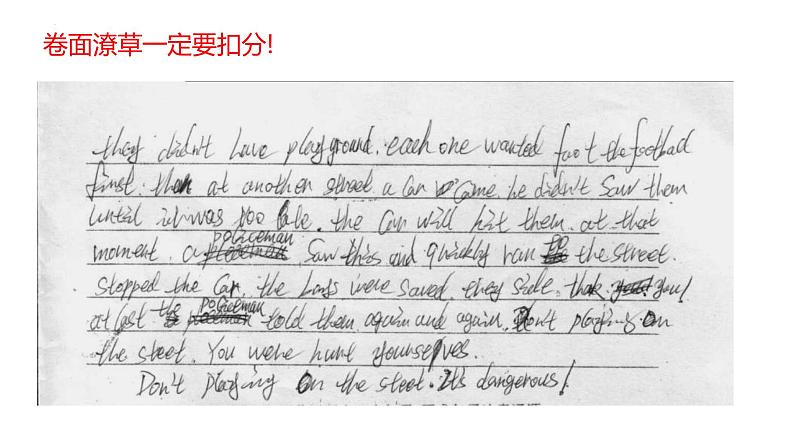 卷面潦草一定要扣分!
they didn't have playground. each one wanted foot the football
first. then at another street. a car come. he didn't saw them
until it was too late. the car will hit them. at that
moment. a policeman saw this and quickly ran to the street.
stopped the car. the boys were saved. they side. thak you!
at last the policeman told them again and again. Don't playing on
the steet. You were hunt yourselves.
Don't playing On the steet. It's dangerous!